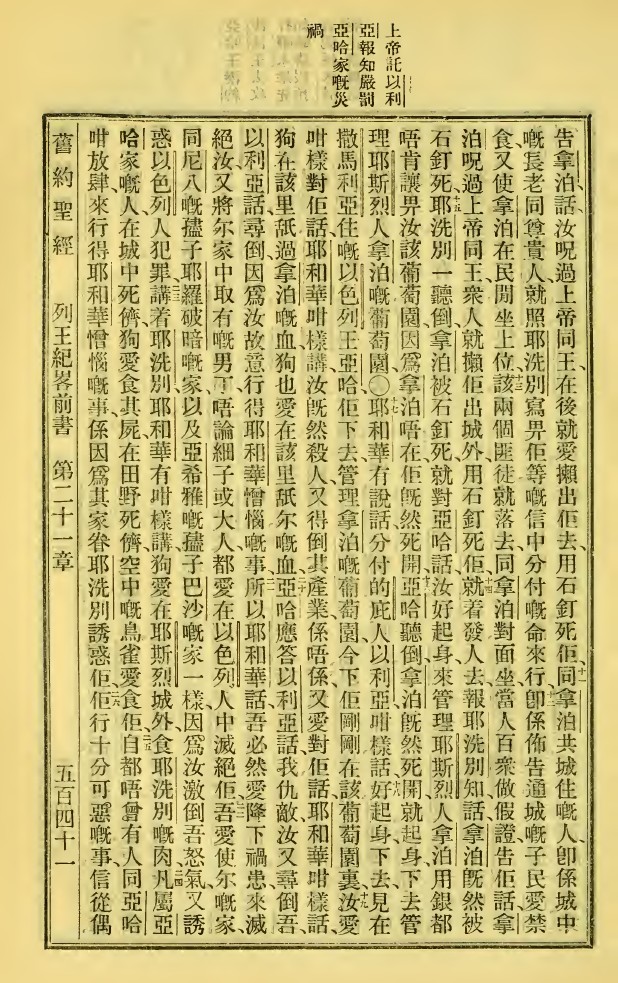 上帝託以利
亞報知嚴罰
亞哈家嘅災
禍
告拿泊話汝呪過上帝同王、在後就愛攋出佢去、用石釘死佢、十一同拿泊共城住嘅人、卽係城中
嘅長老同尊貴人、就照耶洗別寫畀佢等嘅信中分付嘅命來行、十二卽係佈告通城嘅子民愛禁
食、又使拿泊在民閒坐上位、十三該兩個匪徒就落去、同拿泊對面坐、當人百衆做假證告佢話、拿
泊呪過上帝同王、衆人就攋佢出城外、用石釘死佢、十四就着發人去報耶洗別知話、拿泊旣然被
石釘死、十五耶洗別一聽倒拿泊被石釘死、就對亞哈話、汝好起身來管理耶斯烈人拿泊用銀都
唔肯讓畀汝該葡萄園、因爲拿泊唔在、佢旣然死開、十六亞哈聽倒拿泊旣然死開、就起身下去管
理耶斯烈人拿泊嘅葡萄園、〇十七耶和華有說話分付的庇人以利亞咁樣話、十八好起身下去見在
撒馬利亞住嘅以色列王亞哈、佢下去管理拿泊嘅葡萄園、今下佢剛剛在該葡萄園裏、十九汝愛
咁樣對佢話、耶和華咁樣講、汝旣然殺人、又得倒其產業、係唔係、又愛對佢話、耶和華咁樣話、
狗在該里舐過拿泊嘅血、狗也愛在該里舐尔嘅血、二十亞哈應答以利亞話、我仇敵、汝又尋倒吾、
以利亞話、尋倒、因爲汝故意行得耶和華憎惱嘅事、二一所以耶和華話、吾必然愛降下禍患來滅
絕汝、又將尔家中取有嘅男丁、唔論細子或大人、都愛在以色列人中滅絕佢、二二吾愛使尔嘅家、
同尼八嘅孻子耶羅破暗嘅家、以及亞希雅嘅孻子巴沙嘅家一樣、因爲汝激倒吾怒氣、又誘
惑以色列人犯罪、二三講着耶洗別、耶和華有咁樣講、狗愛在耶斯烈城外食耶洗別嘅肉、二四凡屬亞
哈家嘅人、在城中死儕、狗愛食其屍、在田野死儕、空中嘅鳥雀愛食佢、二五自都唔曾有人同亞哈
咁放肆、來行得耶和華憎惱嘅事、係因爲其家眷耶洗別誘惑佢、二六佢行十分可惡嘅事、信從偶
舊約聖經 列王紀畧前書 第二十一章 五百四十一